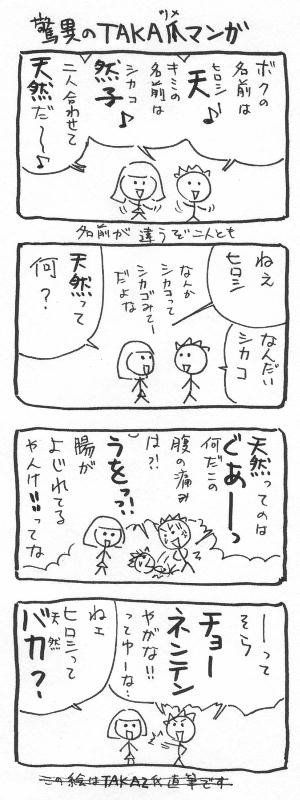 ツメ
驚異のTAKA爪マンガ
ボクの
名前は
ヒロシ
天♪
キミの
名前は
シカコ
然子♪
二人合わせて
天然だ〜〜♪
名前が違うぞ二人とも
ねえ
ヒロシ
なんだい
シカコ
なんか
シカコって
シカゴみてー
だよな
天然って
何?
天然ってのは
ぐあーーっ
何だこの
腹の痛み
は?!
うをっっ!!
腸が
よじれてる
やんけ!!ってな
ーーって
そら
チョー
ネンテン
やがな!!
ってゆーな…
ねェ
ヒロシって
天然
バカ?
この絵はTAKA2氏直筆です